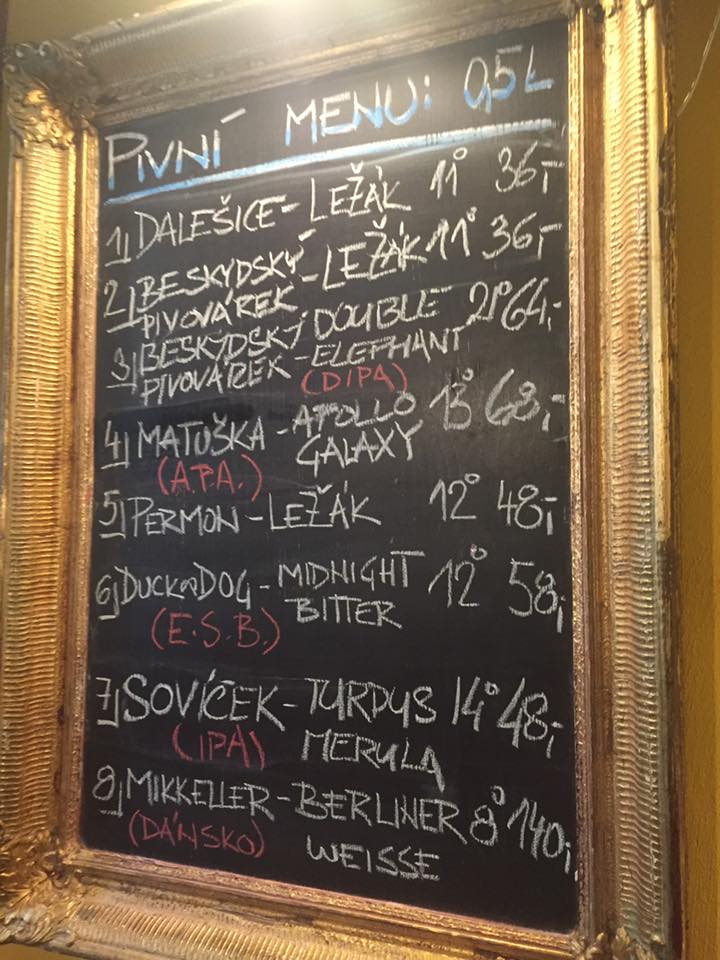 PIVNÍ MENU: 0,5L
1) DALEŠICE - LEŽÁK 11° 36,-
2) BESKYDSKÝ PIVOVÁREK - LEŽÁK 11° 36,-
3) BESKYDSKÝ DOUBLE 21° 64,-
PIVOVÁREK - ELEPHANT
(DIPA)
4) MATUŠKA - APOLLO 13° 68,-
GALAXY
(A.P.A.)
5) PERMON - LEŽÁK 12° 48,-
6) DUCKnDOG - MIDNIGHT 12° 58,-
BITTER
(E.S.B.)
7) SOVÍČEK - TURDUS 14° 48,-
(IPA) MERULA
8) MIKKELLER - BERLINER 8° 140,-
(DÁNSKO) WEISSE